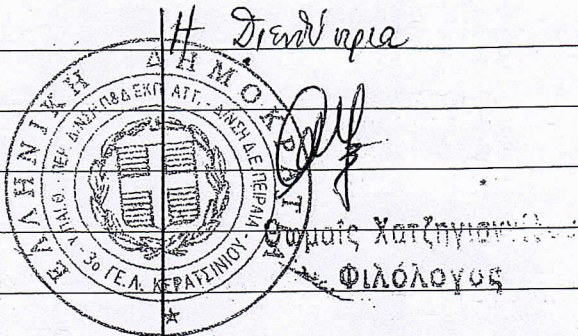 Η Διευθύντρια
ΕΛΛΗΝΙΚΗ ΔΗΜΟΚΡΑΤΙΑ
Υ.ΠΑΙ.Θ. - ΠΕΡ. Δ/ΝΣΗ Π&Δ ΕΚΠ. ΑΤΤ. - Δ/ΝΣΗ Δ.Ε. ΠΕΙΡΑΙΑ
3ο ΓΕ.Λ. ΚΕΡΑΤΣΙΝΙΟΥ
Θωμαΐς
Φιλόλογος